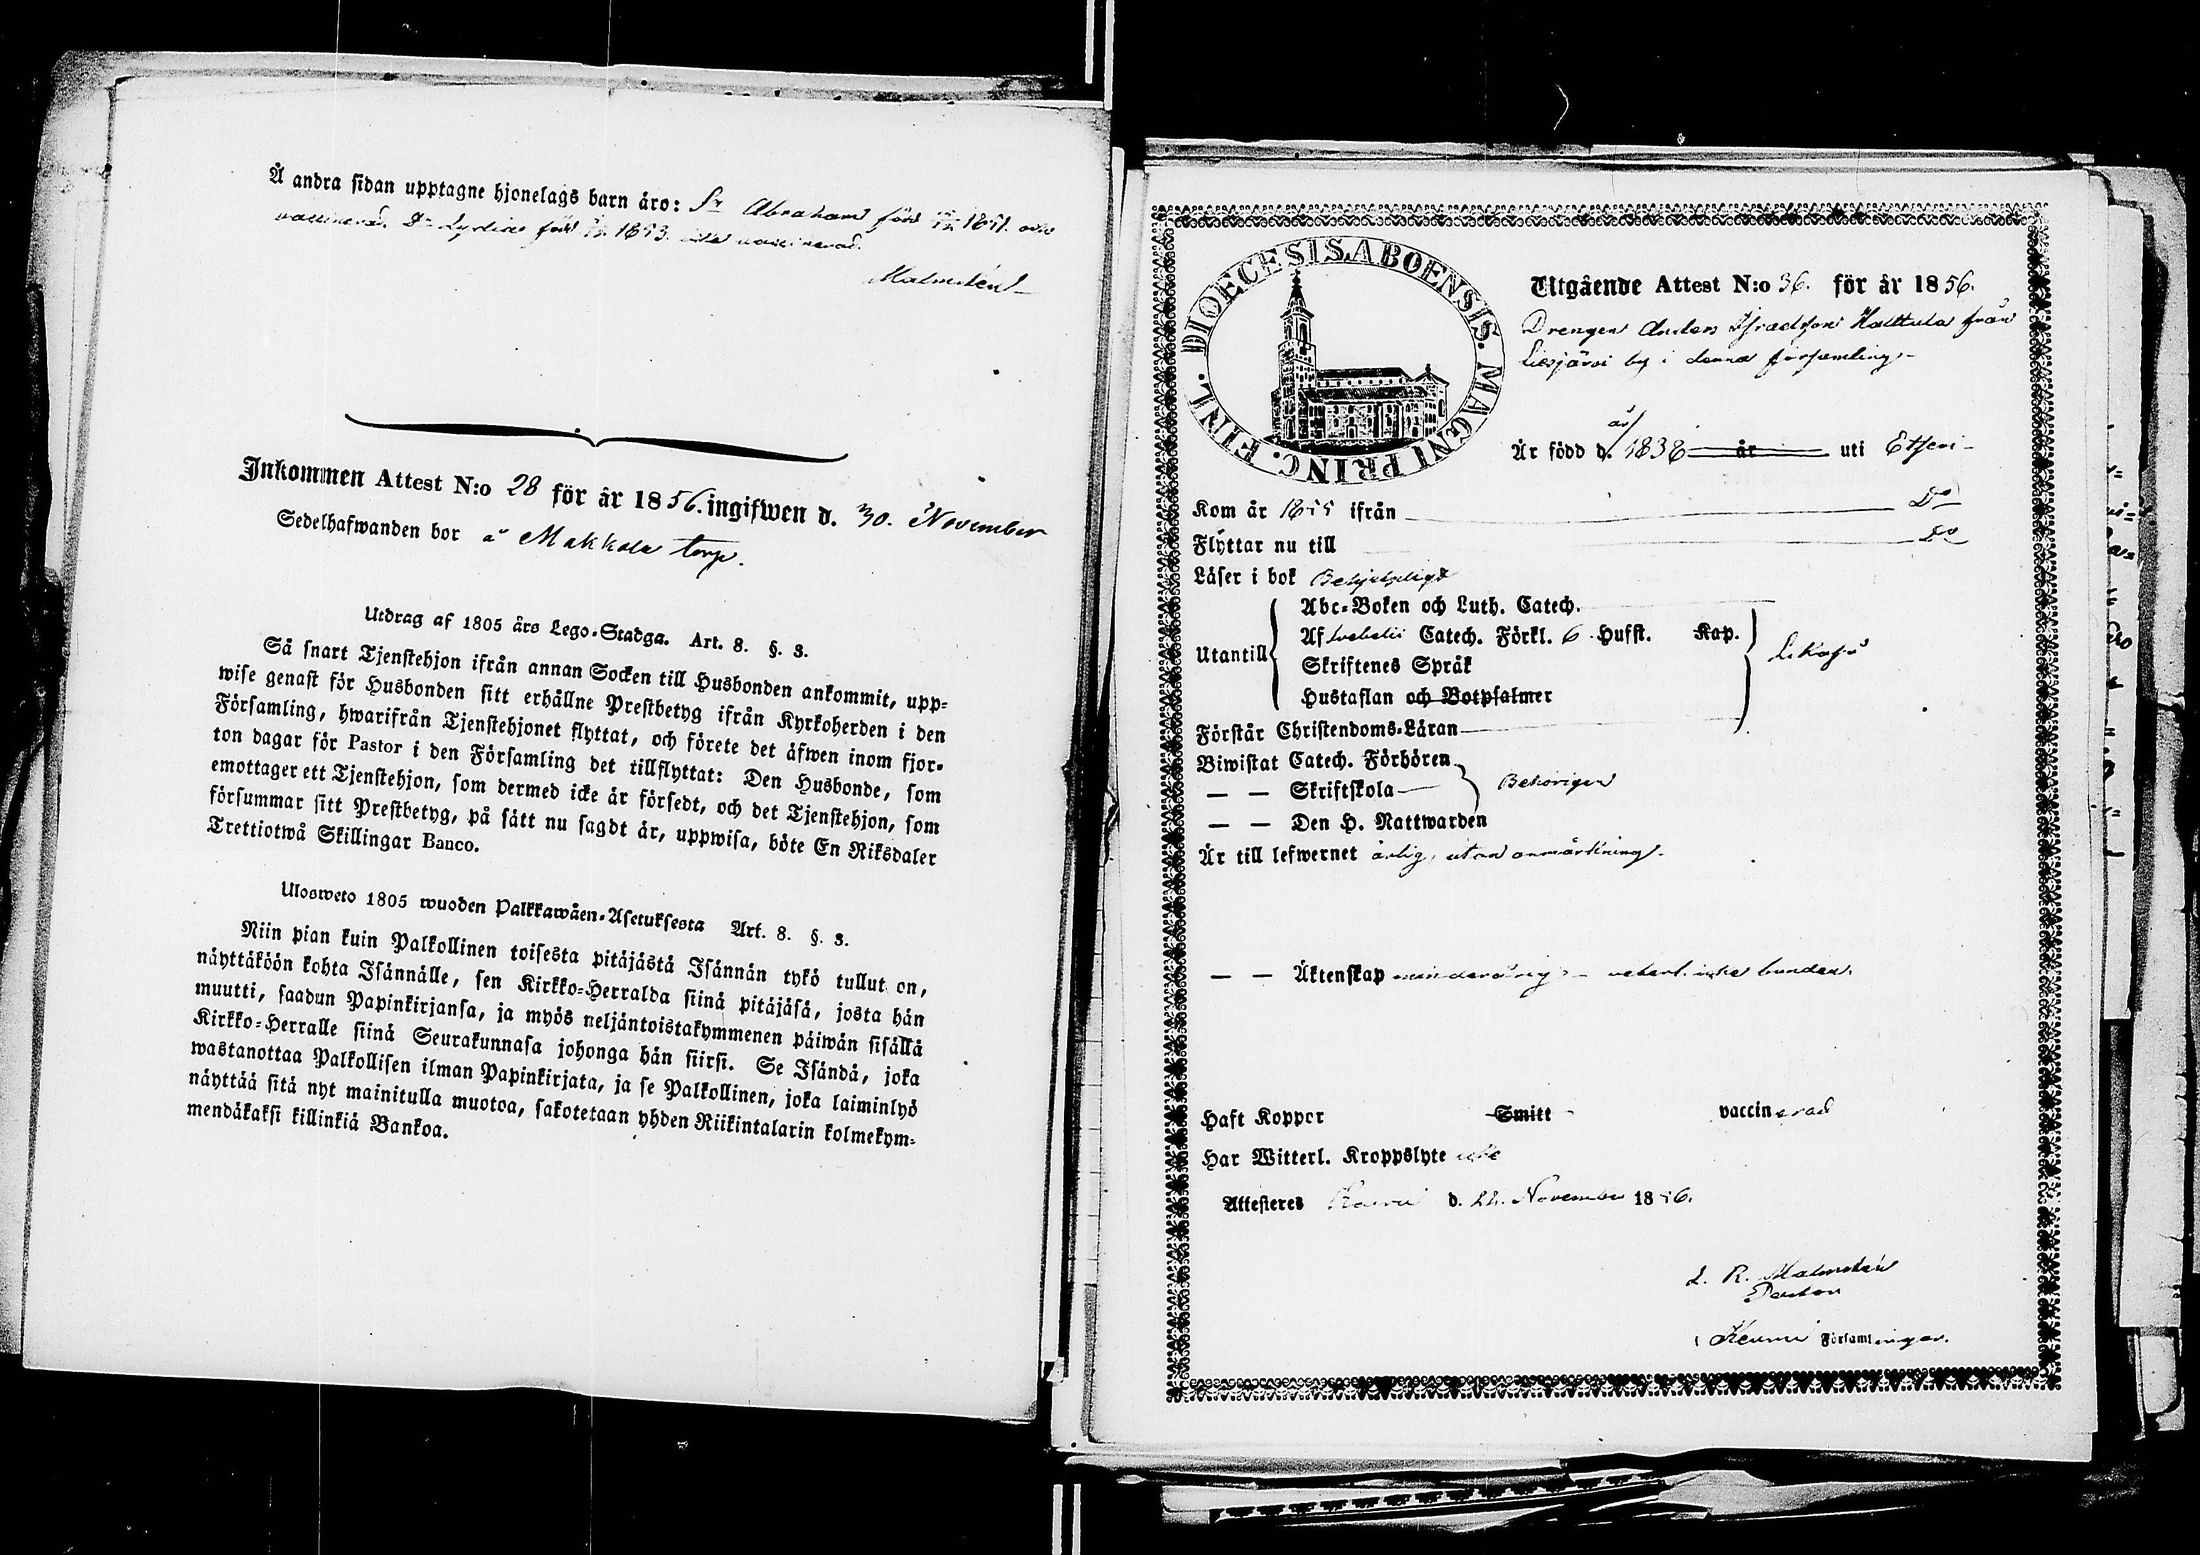 Å andra sidan upptagne hjonelags barn äro: Sn Abraham född 1851. och
vaccinerad. Dr Lydia född 1853. icke vaccinerad.
Malmstén
Inkommen Attest N:o 28 för år 1856. ingifwen d. 30. November
Sedelhafwanden bor å Makkola torp.
Utdrag af 1805 års Lego-Stadga. Art. 8. §. 3.
Så snart Tjenstehjon ifrån annan Socken till Husbonden ankommit, upp-
wise genast för Husbonden sitt erhållne Prestbetyg ifrån Kyrkoherden i den
Församling, hwarifrån Tjenstehjonet flyttat, och förete det äfwen inom fjor-
ton dagar för Pastor i den Församling det tillflyttat: Den Husbonde, som
emottager ett Tjenstehjon, som dermed icke är försedt, och det Tjenstehjon, som
försummar sitt Prestbetyg, på sätt nu sagdt är, uppwisa, böte En Riksdaler
Trettiotwå Skillingar Banco.
Ulosweto 1805 wuoden Palkkawäen-Asetuksesta Art. 8. §. 3.
Niin pian kuin Palkollinen toisesta pitäjästä Isännän tykö tullut on,
näyttäköön kohta Isännälle, sen Kirkko-Herralda siinä pitäjäsä, josta hän
muutti, saadun Papinkirjansa, ja myös neljäntoistakymmenen päiwän sisällä
Kirkko-Herralle siinä Seurakunnasa johonga hän siirsi. Se Isändä, joka
wastanottaa Palkollisen ilman Papinkirjata, ja se Palkollinen, joka laiminlyö
näyttää sitä nyt mainitulla muotoa, sakotetaan yhden Riikintalarin kolmekym-
mendäkaksi killinkiä Bankoa.
DIOECESIS. ABOENSIS. MAGNI PRINC. FINL.
Utgående Attest N:o 36. för år 1856.
Drengen Anders Israelsson Hallula från
Liesjärvi by i denna församling
Är född d. år 1838 år uti Etseri
Kom år 1855 ifrån Do
Flyttar nu till Do
Läser i bok Behjelpligt
Utantill
Abc-Boken och Luth. Catech.
Af Svebelii Catech. Förkl. 6 Hufst. Kap.
Skriftenes Språk
Hustaflan och Botpsalmer
Likaså
Förstår Christendoms-Läran
Biwistat Catech. Förhören
— — Skriftskola
Behörigen
— — Den H. Nattwarden
Är till lefwernet ärlig, utan anmärkning.
— — Äktenskap minderårig, veterl. icke bunden.
Haft Koppor Smitt vaccinerad
Har Witterl. Kroppslyte icke
Attesteres Keuru d. 22. November 1856.
L. R. Malmstén
Pastor
i Keuru Församlingar.